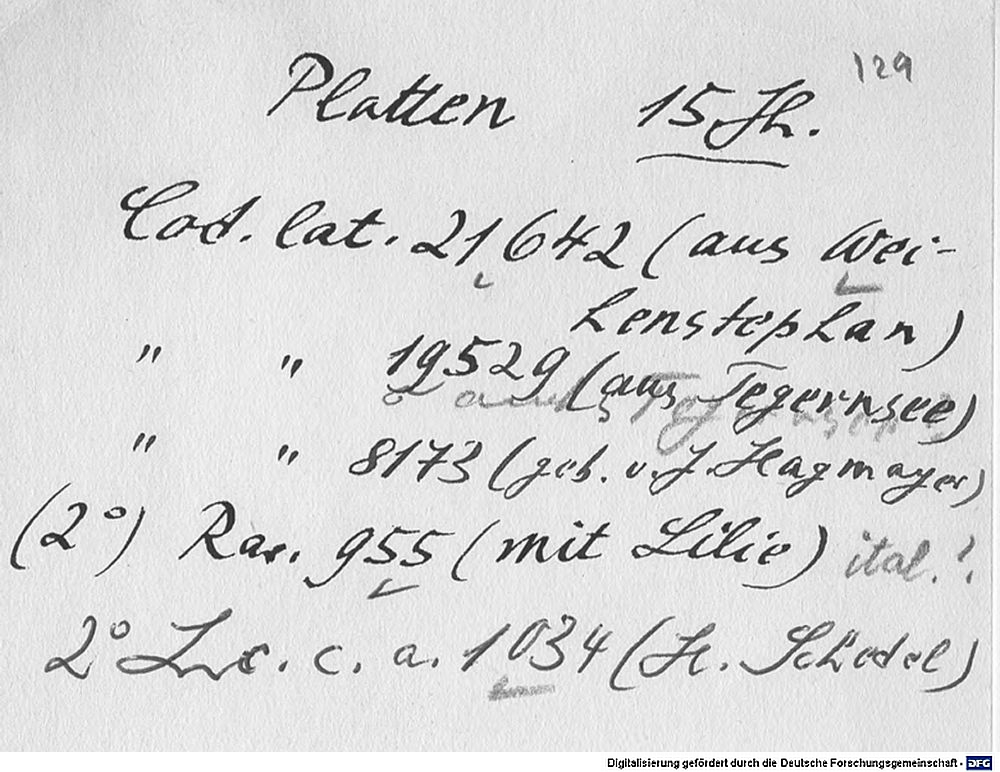 129
Platten 15. Jh.
Cod. lat. 21642 (aus Wei-
henstephan)
" " 19529 (aus Tegernsee)
" " 8173 (geb. v. J. Hagmayer)
(2°) Rar. 955 (mit Lilie) ital.?
2° Inc. c. a. 1034 (H. Schedel)
Digitalisierung gefördert durch die Deutsche Forschungsgemeinschaft - DFG